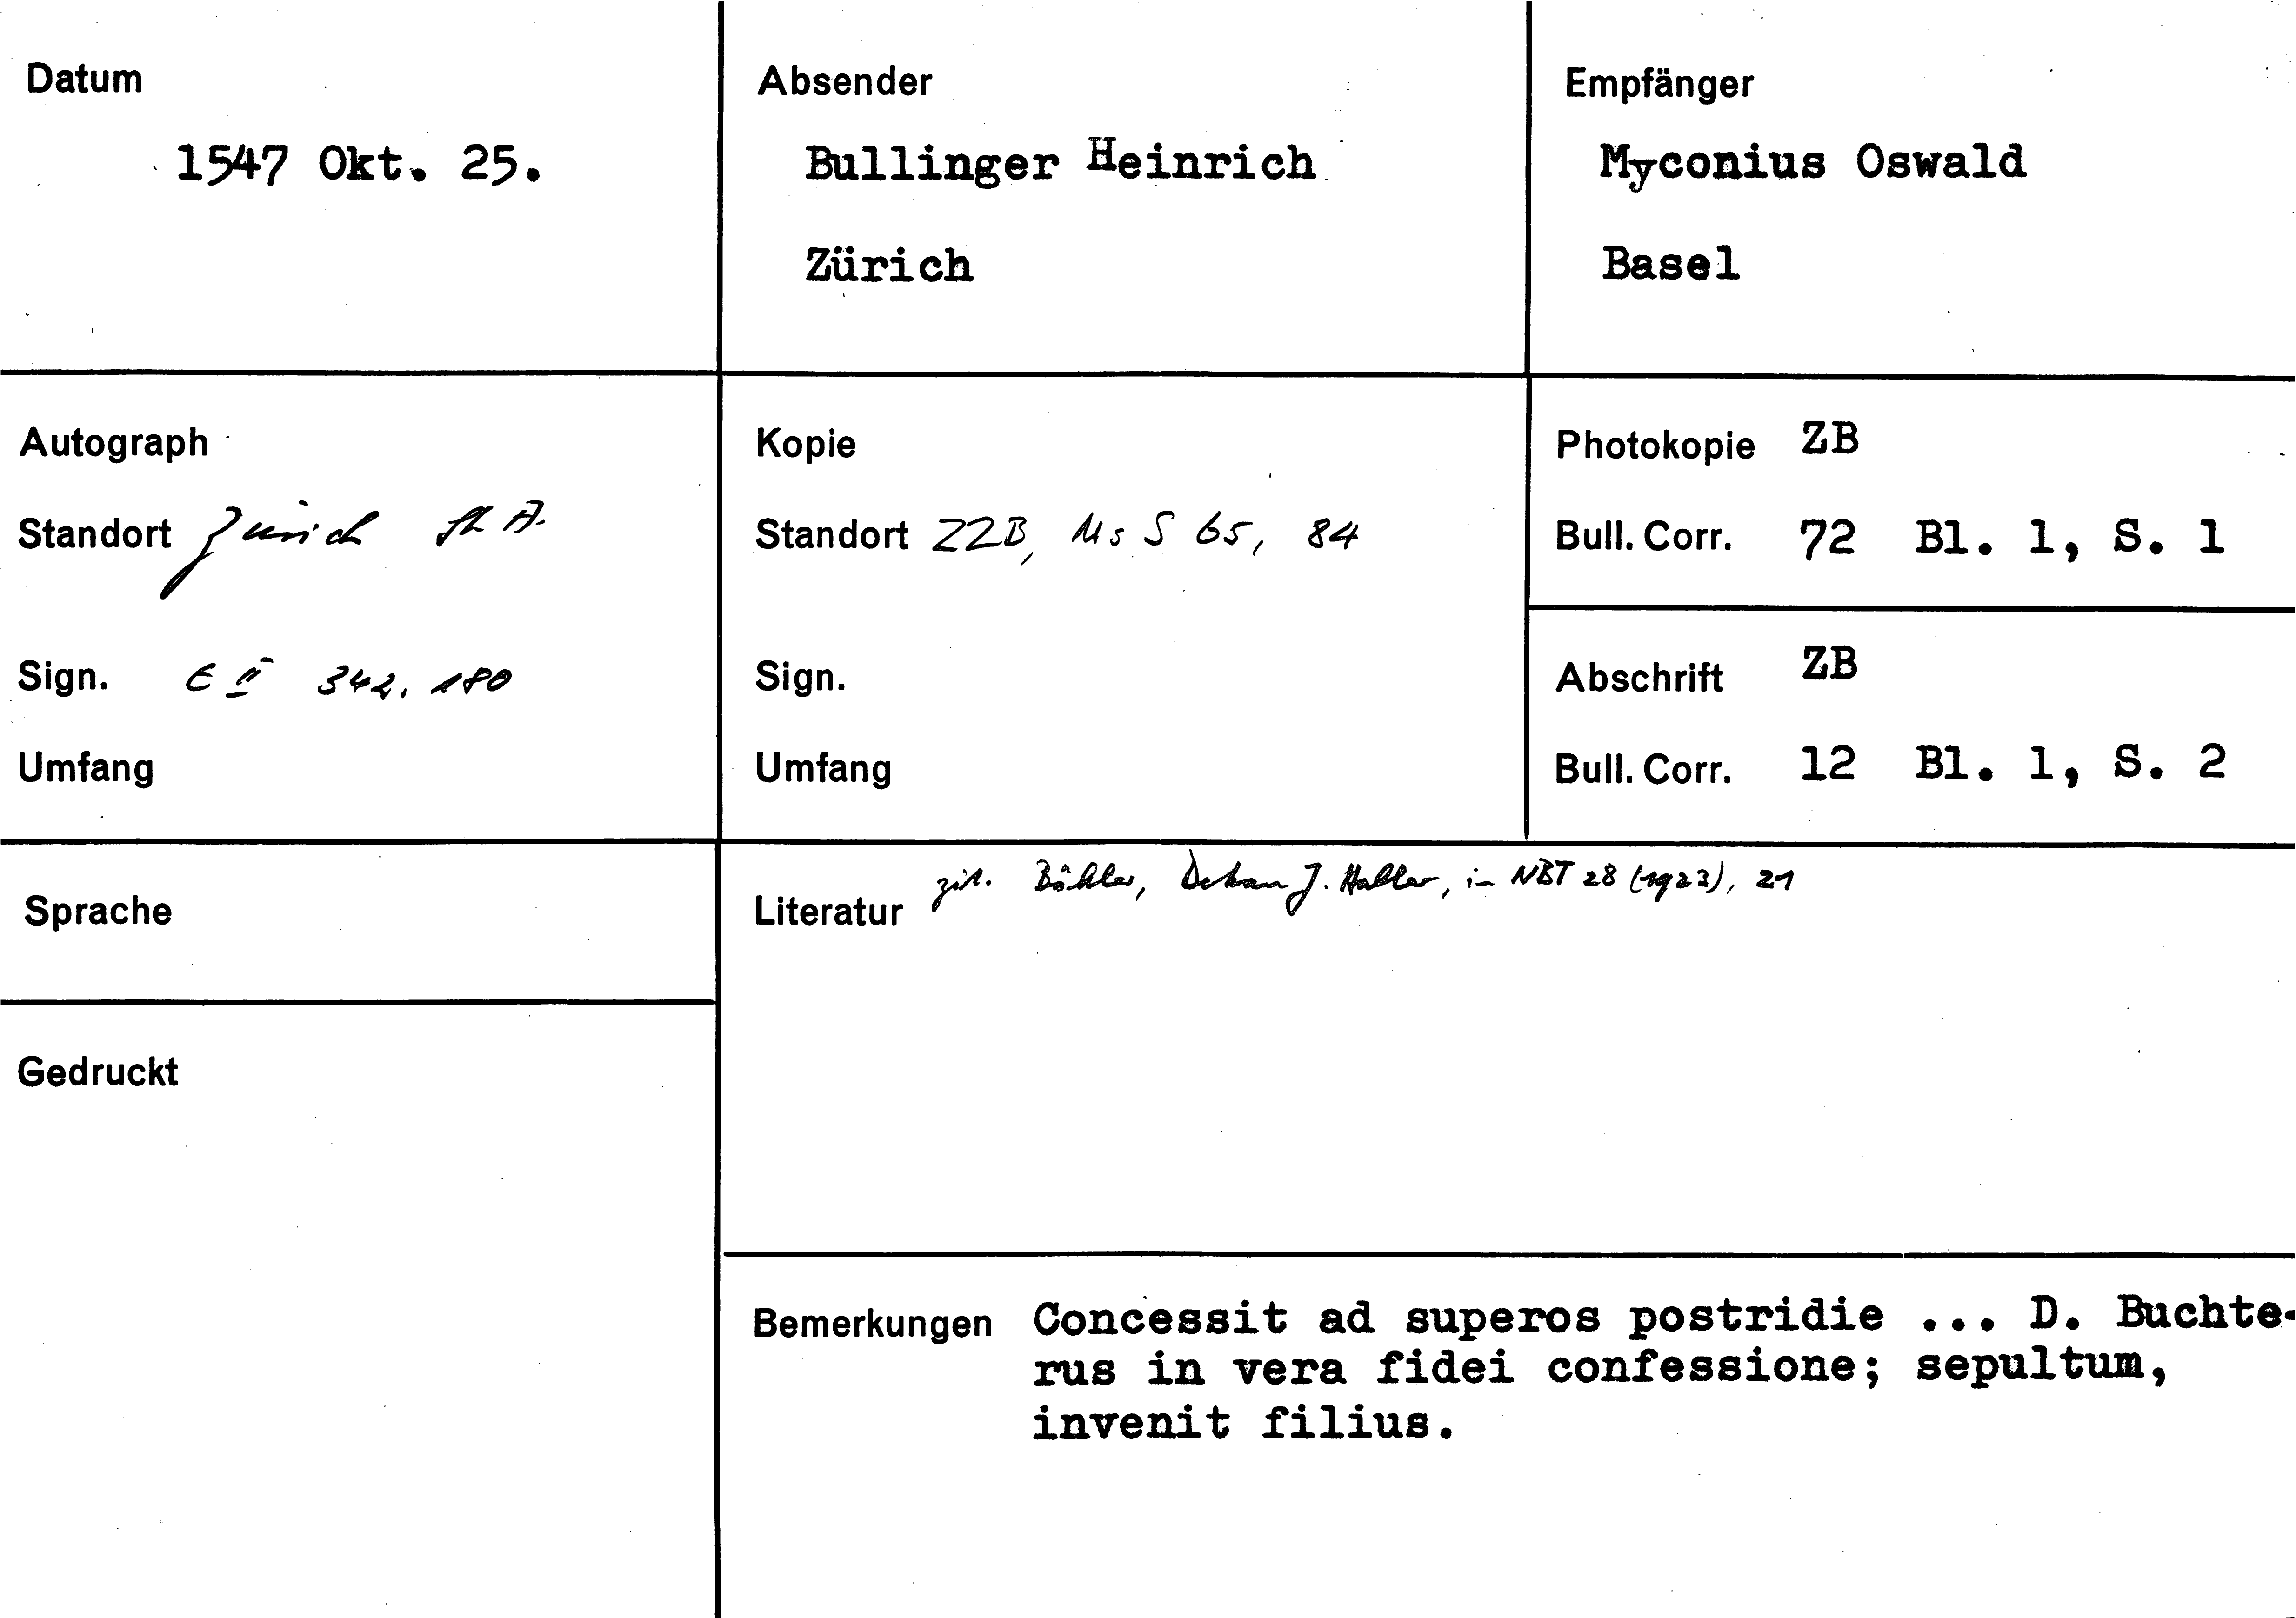 Datum
1547 Okt. 25.
Absender
Bullinger Heinrich
Zürich
Empfänger
Myconius Oswald
Basel
Autograph
Standort Zürich StA.
Sign. E II 342, 180
Umfang
Kopie
Standort ZZB, Ms S 65, 84
Sign.
Umfang
Photokopie ZB
Bull. Corr. 72 Bl. 1, S. 1
Abschrift ZB
Bull. Corr. 12 Bl. 1, S. 2
Sprache
Gedruckt
Literatur zit. Bähler, Dekan J. Haller, in NBT 28 (1923), 21
Bemerkungen Concessit ad superos postridie ... D. Buchte-
rus in vera fidei confessione; sepultum,
invenit filius.